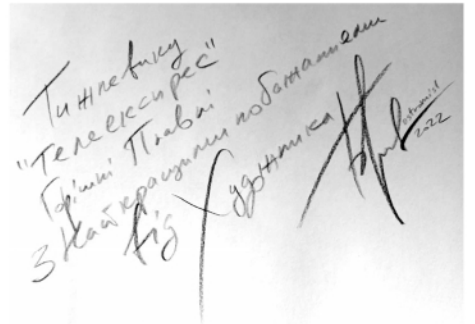 Тижневику
"Телеекспрес"
Горішні Плавні
З Найкращими побажаннями
від Художника
2022